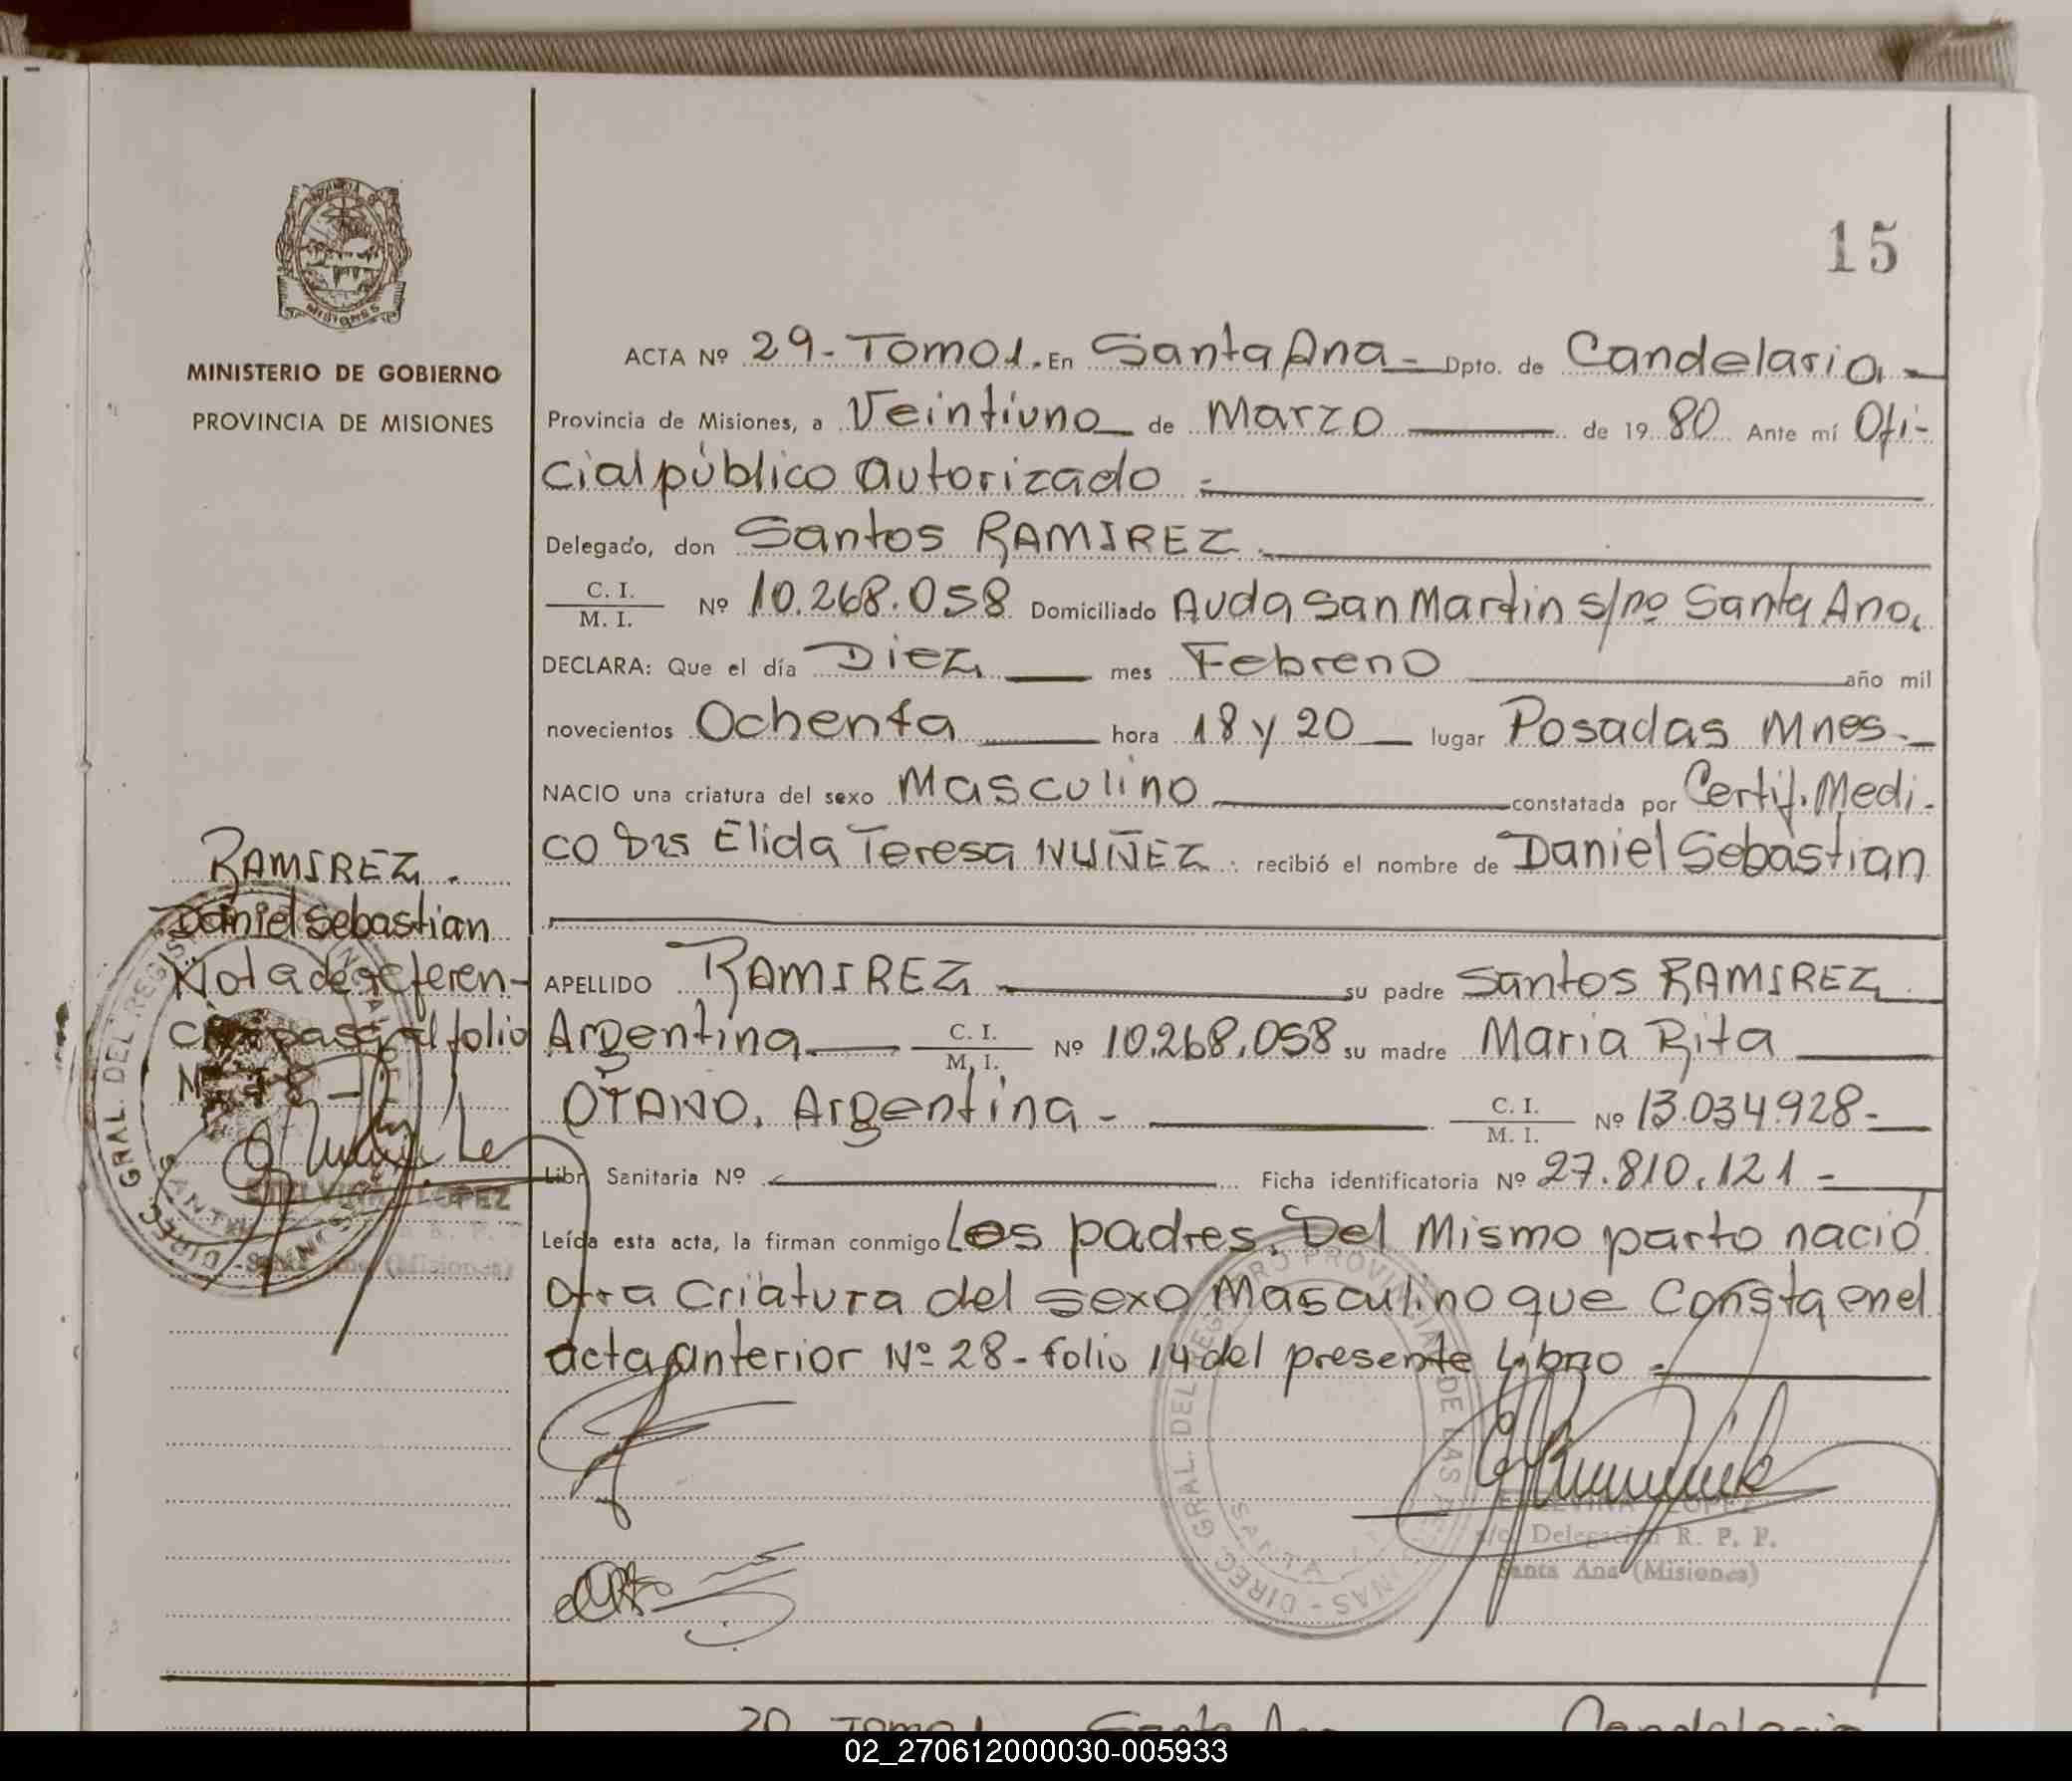 15
MISIONES
MINISTERIO DE GOBIERNO
PROVINCIA DE MISIONES
ACTA Nº 29-Tomo1. En Santa Ana- Dpto. de Candelaria-
Provincia de Misiones, a Veintiuno de Marzo de 1980 Ante mí Ofi-
cial público autorizado -
Delegado, don Santos RAMIREZ
C. I.
M. I. Nº 10.268.058 Domiciliado Avda San Martin s/nº Santa Ana.
DECLARA: Que el día Diez mes Febrero año mil
novecientos Ochenta hora 18 y 20 lugar Posadas Mnes.-
NACIO una criatura del sexo Masculino constatada por Certif. Medi-
co Elida Teresa NUÑEZ. recibió el nombre de Daniel Sebastian
RAMIREZ.
Daniel Sebastian
Nota de referen-
cia pasa al folio
APELLIDO RAMIREZ su padre Santos RAMIREZ
Argentina C. I.
M. I. Nº 10.268.058 su madre Maria Rita
OTANO. Argentina - C. I.
M. I. Nº 13.034.928-
Libr. Sanitaria Nº Ficha identificatoria Nº 27.810.121-
Leída esta acta, la firman conmigo Los padres. Del Mismo parto nació
otra Criatura del sexo Masculino que Consta en el
acta anterior Nº 28-folio 14 del presente Libro-
LOPEZ
Santa Ana (Misiones)
DIREC. GRAL. DEL REGISTRO PROVINCIAL DE LAS PERSONAS - SANTA ANA
LOPEZ
Delegación R. P. P.
Santa Ana (Misiones)
30 Tomo 1 Santa Ana Candelaria
02_270612000030-005933